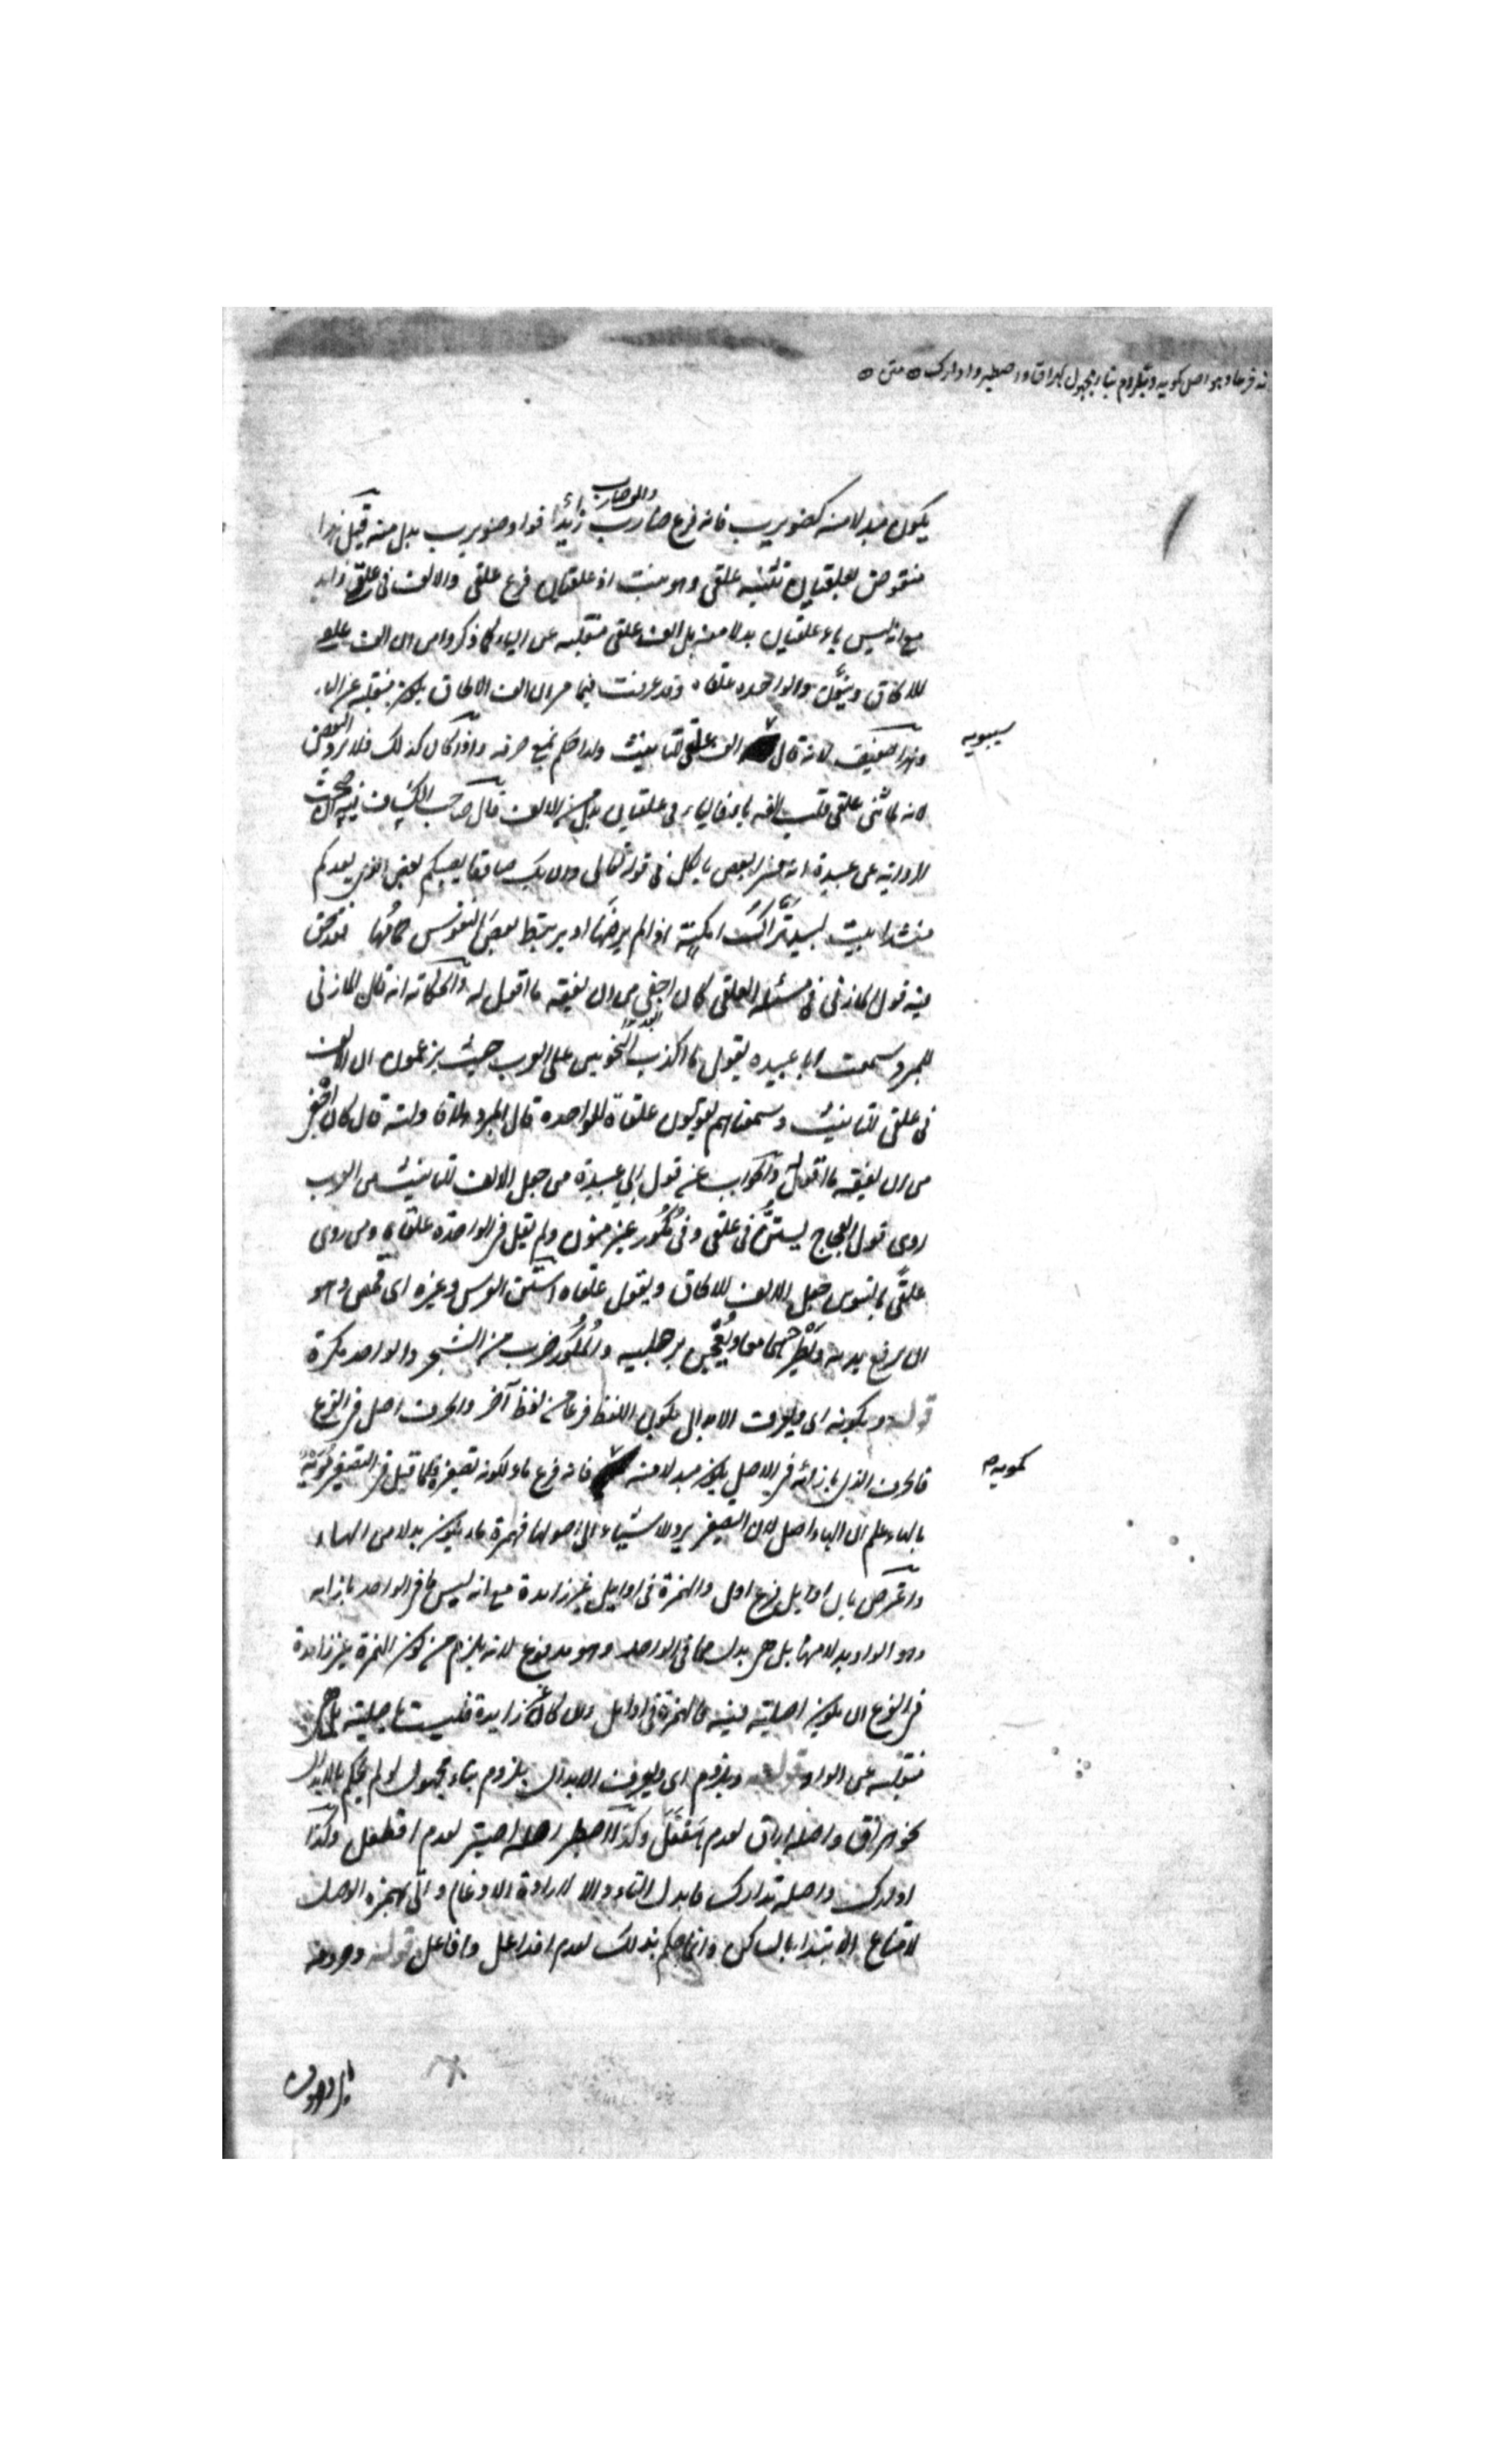 يكون مبدلا منه كضويرب فانه فرع ضارب والف ضارب زائد فواو ضويرب بدل منه قيل هذا
منقوض بعلقيان تثنية علقى وهو نبت اذ علقيان فرع علقى والالف في علقى زايد
مع انه ليس ياء علقيان بدلا منه بل الف علقى منقلبة عن الياء كما ذكروا من ان الف علقى
للالحاق وينون والواحدة علقاه وقد عرفت فيما مر ان الف الالحاق يكون منقلبة عن الياء
وهذا ضعيف لانه قال الف علقى للتانيث ولذا حكم بمنع صرفه واذا كان كذلك فلا يرد النقض
سيبويه
لانه لما ثنى علقى قلب الفه ياء فالياء في علقيان بدل من الالف قال صاحب الكشاف فيه
لاروايته عن عبيدة انه فسر البعض بالكل في قوله تعالى وان يك صادقا يصبكم بعض الذي يعدكم
منشدا بيت لبيد تراك امكنة اذا لم يرضها او يرتبط بعض النفوس حمامها فقد حق
فيه قول المازني في مسئلة العلقى كان اجفى من ان يفقه ما اقول له والحكاية انه قال المازني
للمبرد سمعت ابا عبيده يقول ما اكذب النحويين على العرب حيث يزعمون ان الالف
في علقى للتانيث وسمعناهم يقولون علقاة للواحده قال المبرد هلا قاولته قال كان اجفى
من ان يفقه ما اقول له والجواب عن قول ابي عبيدة من جعل الالف للتانيث من العرب
روى قول العجاج يستن في علقى وفي مكور غير منون ولم يقل في الواحدة علقاه ومن روى
علقى بالتنوين جعل الالف للالحاق ويقول علقاه استن الفرس وغيره اى قمص وهو
ان يرفع يديه ويطرحهما معا ويعجن برجليه والمكور ضرب من الشجر والواحد مكرة
قوله وبكونه اى ويعرف الابدال بكون اللفظ فرعا من لفظ آخر والحرف اصل في الفرع
فالحرف الذي بازائه في الاصل يكون مبدلا منه كمويه فانه فرع ماء لكونه تصغيره فلما قيل في التصغير مويه
بالهاء علم ان الهاء اصل لان التصغير يرد الاشياء الى اصولها فهمزة ماء يكون بدلا من الهاء
واعترض بان اوايل فرع اول والهمزة في اوايل غير زايدة مع انه ليس ما في الواحد بازائه
وهو الواو بدلا منها بل هي بدل مما في الواحد وهو مدفوع لانه يلزم من كون الهمزة غير زايدة
في الفرع ان يكون اصلية فيه فالهمزة في اوايل وان كانت غير زايدة فليست باصلية بل هي
منقلبة عن الواو قوله وبلزوم اى ويعرف الابدال بلزوم بناء مجهول لو لم يحكم بالابدال
نحو هراق واصله اراق لعدم هفعل وكذا اصطبر اصله اصتبر لعدم افطعل وكذا
ادارك واصله تدارك فابدل التاء دالا لارادة الادغام واتى بهمزة الوصل
لامتناع الابتدا بالساكن وانما حكم بذلك لعدم افداعل وافاعل قوله وحروفه